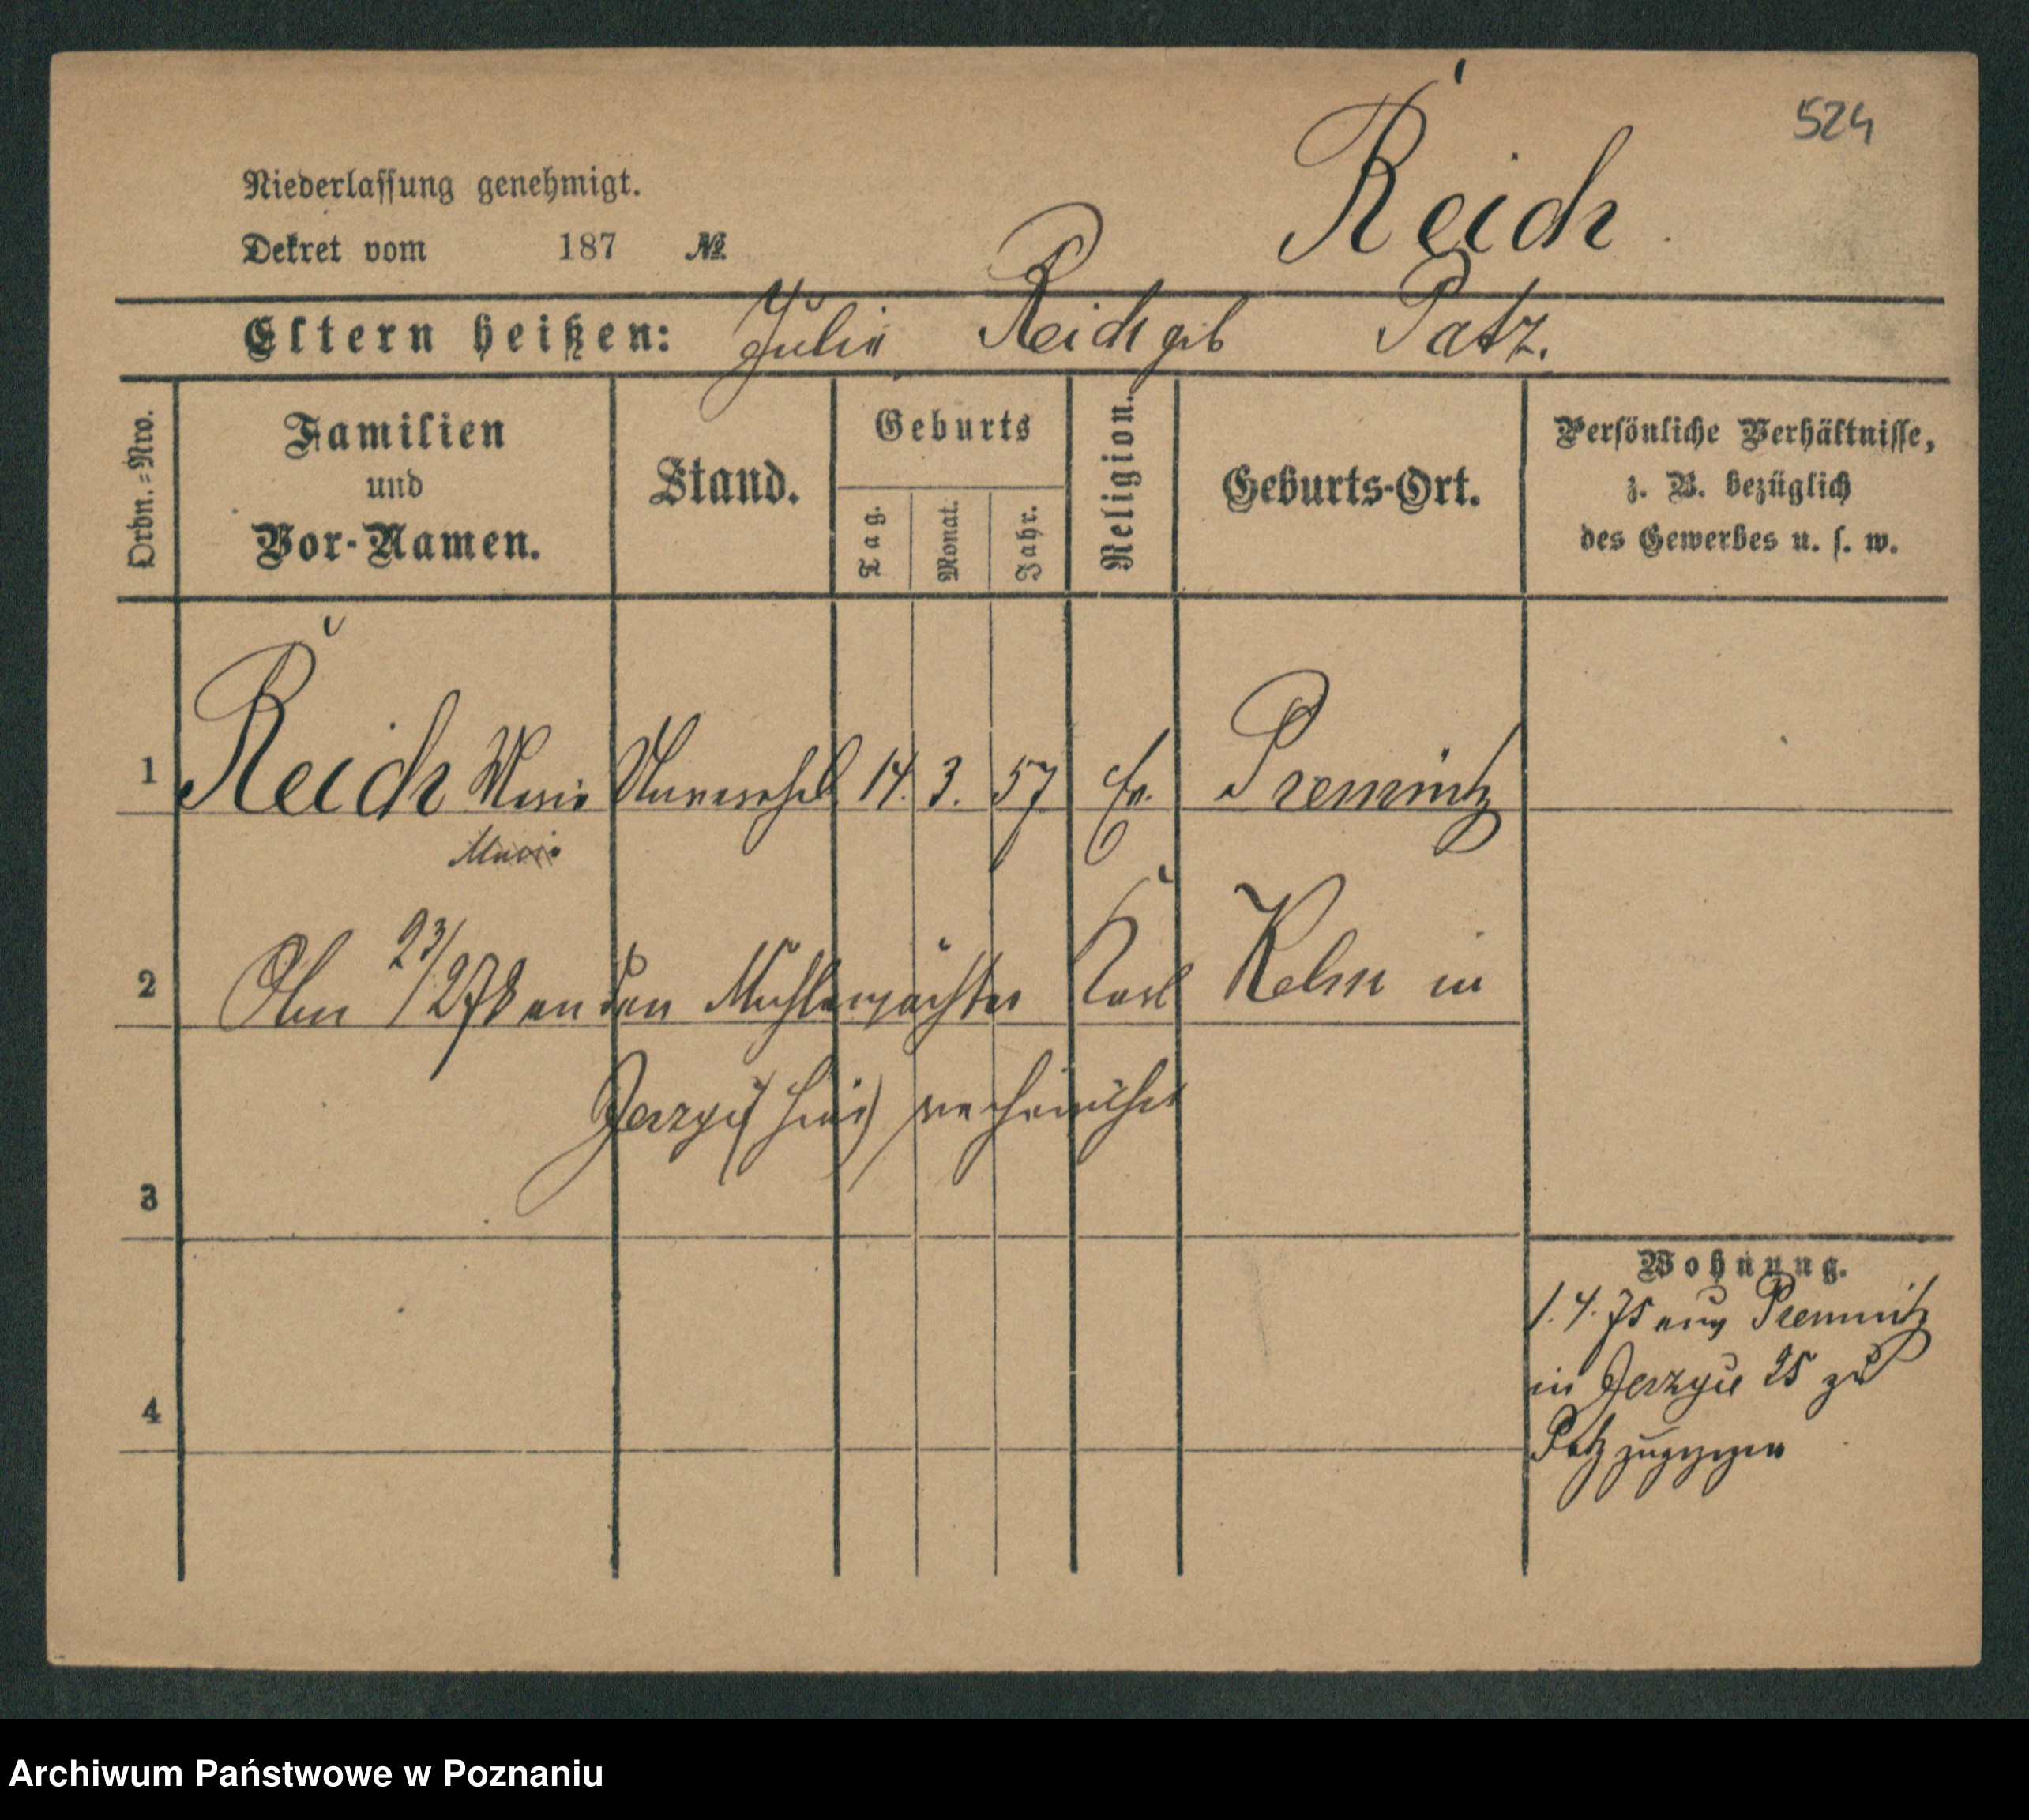 524
Reich
Niederlassung genehmigt.
Dekret vom 187 №
Eltern heißen: Julie Reich geb Patz.
Ordn.=Nro.
Familien
und
Vor-Namen.
Stand.
Geburts
Tag.
Monat.
Jahr.
Religion.
Geburts-Ort.
Persönliche Verhältnisse,
z. B. bezüglich
des Gewerbes u. s. w.
1 Reich Marie Unverehel 14. 3. 57 Ev. Premnitz
Marie
2 Am 23/278 an den Mühlenwächter Karl Kelm in
Jerzyce (hier) verheirathet
3
Wohnung.
1. 4. 75 aus Premnitz
in Jerzyce 25 zu
Patz zugezogen
4
Archiwum Państwowe w Poznaniu